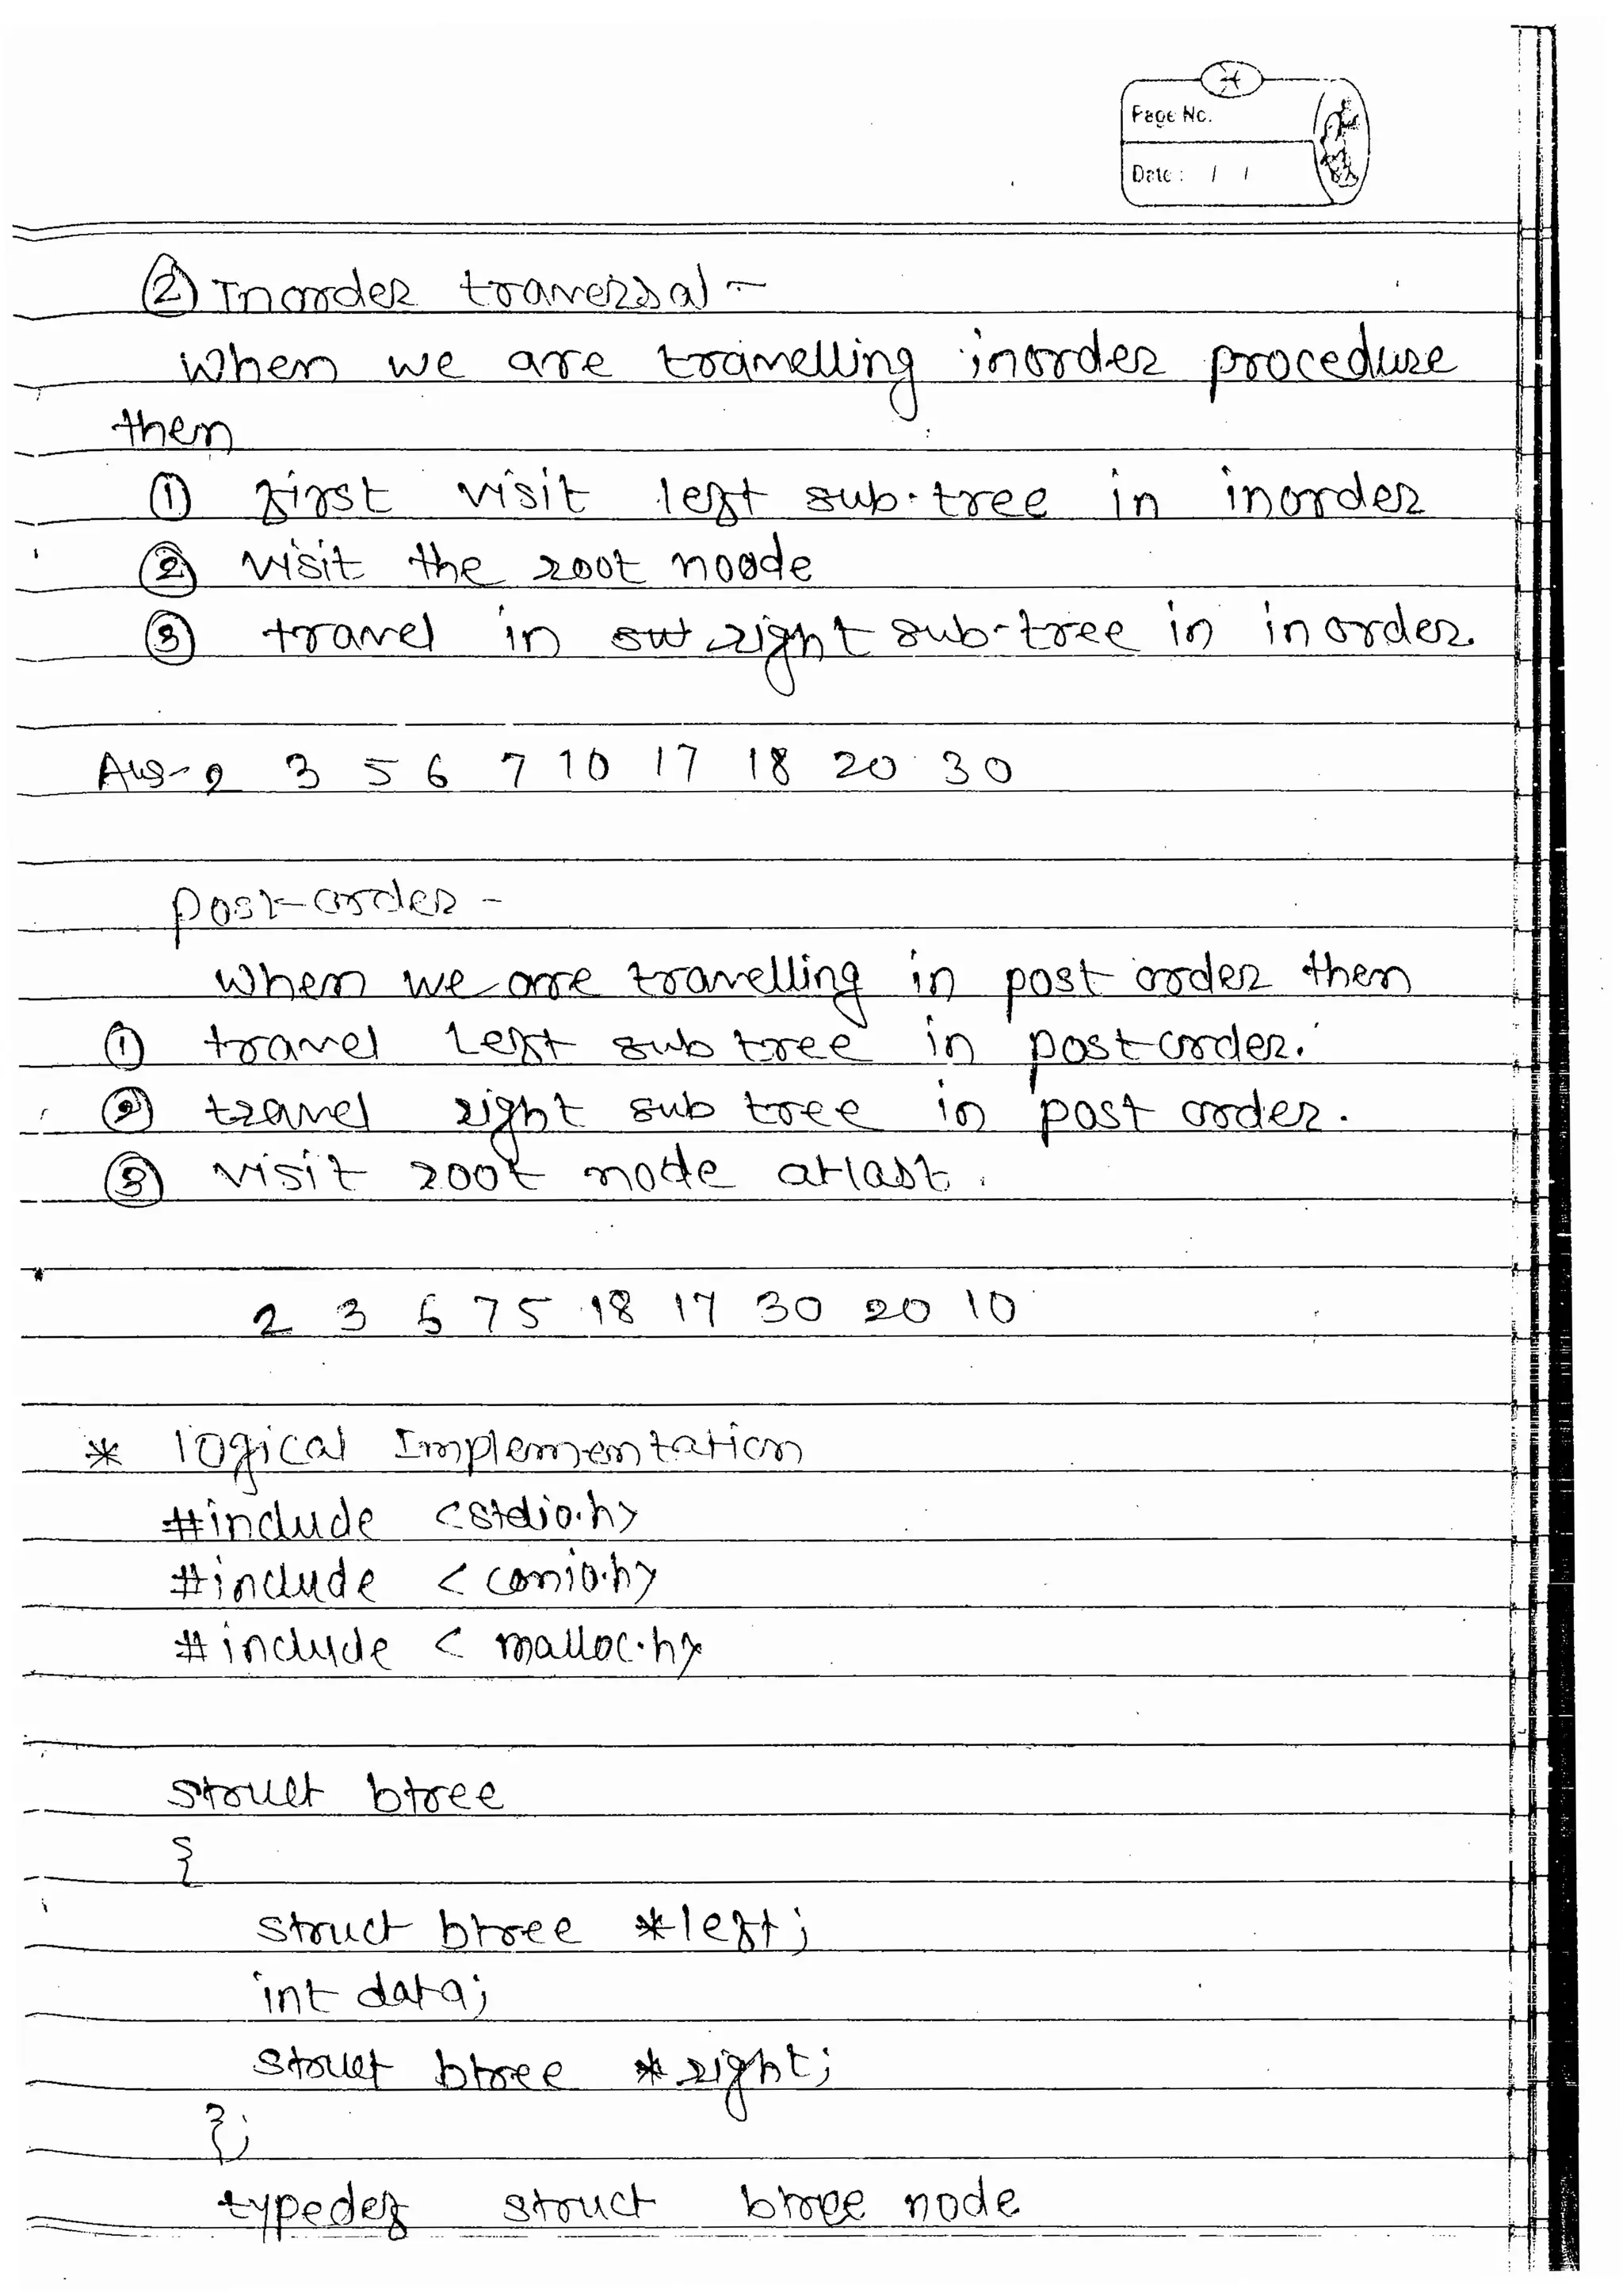 Page No.
Date : / /
② Inorder traversal -
when we are travelling inorder procedure
then
① first visit left sub-tree in inorder
② visit the root noode
③ travel in right sub-tree in inorder.
Ans- 2 3 5 6 7 10 17 18 20 30
post-order -
when we are travelling in post order then
① travel left sub tree in post order.
② travel right sub tree in post order.
③ visit root node atlast.
2 3 6 7 5 18 17 30 20 10
* logical Implementation
#include <stdio.h>
#include < conio.h>
#include < malloc.h>
struct btree
{
struct btree *left;
int data;
struct btree *right;
};
typedef struct btree node